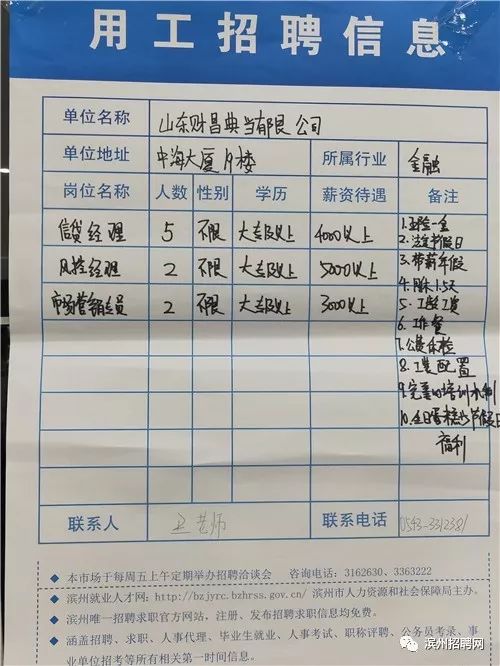 用工招聘信息
单位名称 山东财昌典当有限公司
单位地址 中海大厦19楼 所属行业 金融
岗位名称 人数 性别 学历 薪资待遇 备注
信贷经理 5 不限 大专及以上 4000以上
风控经理 2 不限 大专及以上 5000以上
市场营销专员 2 不限 大专及以上 3000以上
1.五险一金
2.法定节假日
3.带薪年假
4.周休1.5天
5.工龄工资
6.工作餐
7.公费体检
8.工装配置
9.完善的培训机制
10.生日蛋糕以节假日
福利
联系人 老师 联系电话 0543-3312381
◆ 本市场于每周五上午定期举办招聘洽谈会 咨询电话：3162630、3363222
◆ 滨州就业人才网：http://bzjyrc.bzhrss.gov.cn/ 滨州市人力资源和社会保障局主办。
◆ 滨州唯一招聘求职官方网站，注册、发布招聘求职信息均免费。
◆ 涵盖招聘、求职、人事代理、毕业生就业、人事考试、职称评聘、公务员考录、事
业单位招考等所有相关第一时间信息。
滨州招聘网